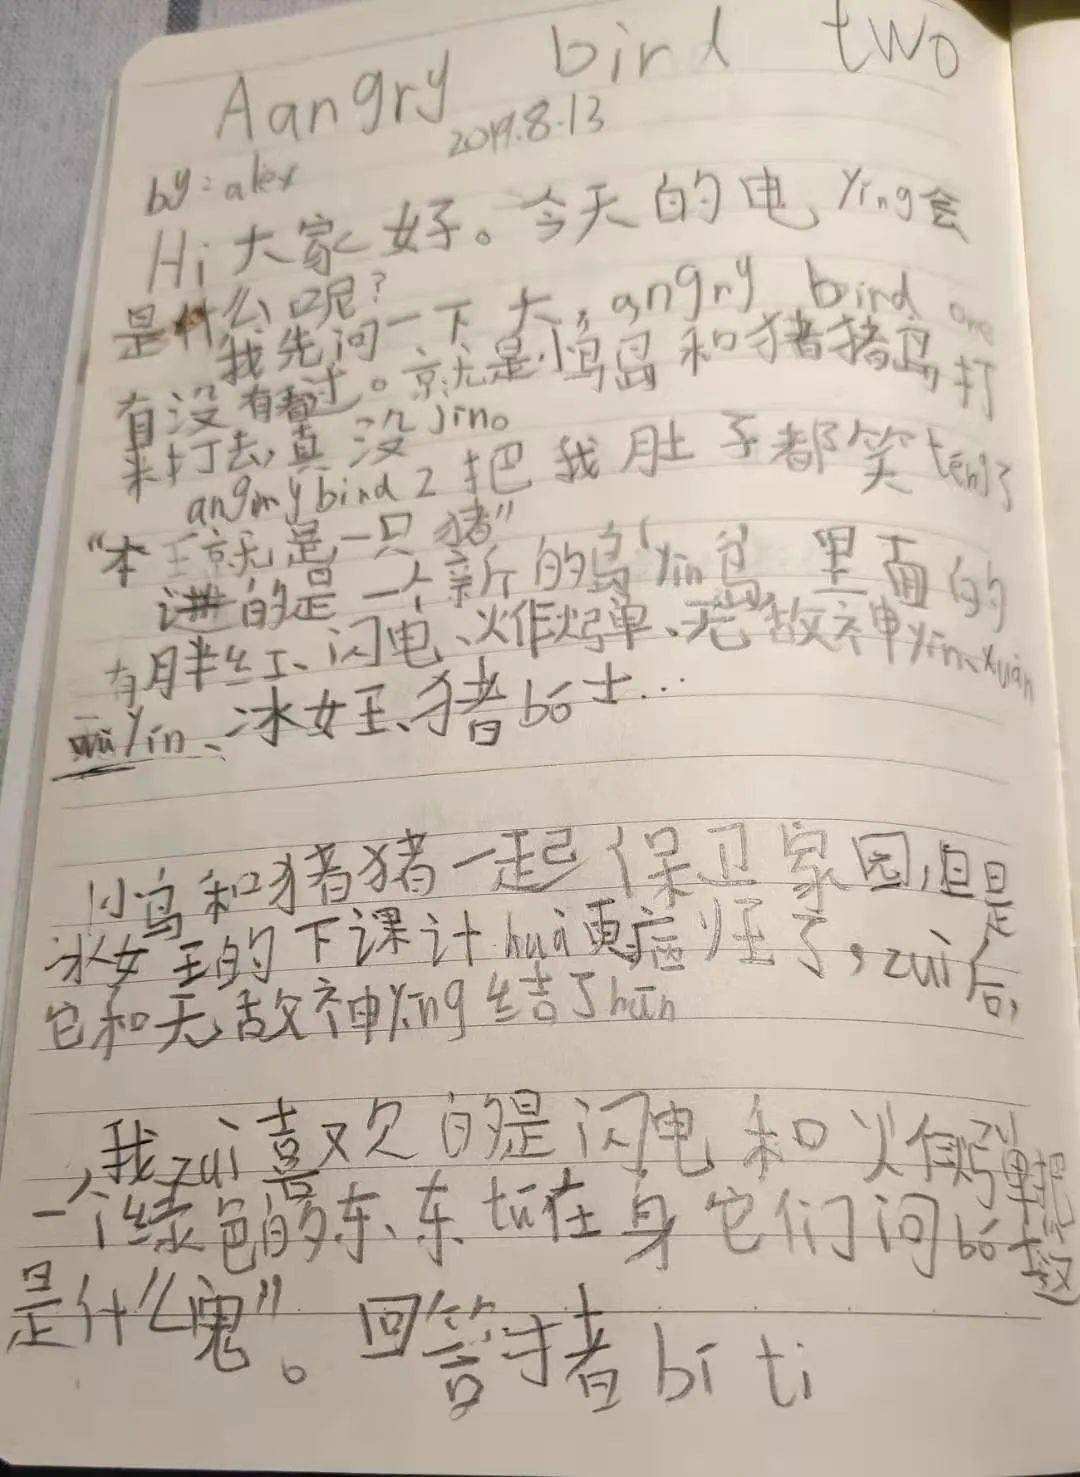 Aangry bird two
2019.8.13
by: alex
Hi 大家好。今天的电ying会
是什么呢?
我先问一下大,angry bird one
有没有看过。就是小鸟岛和猪猪岛打
来打去,真没jin。
angry bird 2 把我肚子都笑teng了
“本王就是一只猪”
讲的是一个新的岛 yin岛 里面的
有胖红、闪电、炸炸弹、无敌神yin、xuan
yin、冰女王、猪bó士...
小鸟和猪猪一起保卫家园,但是
冰女王的下课计hua更疯狂了,zui后,
它和无敌神ying结了hūn
我zui喜欢的是闪电和炸弹 把
一个绿色的东东tú在身 它们问bó士这
是什么鬼”。回答猪bí tì